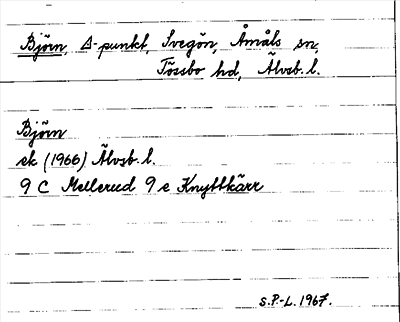 Björn, Δ-punkt, Svegön, Åmåls sn,
Tössbo hd, Älvsb. l.
Björn
ek (1966) Älvsb. l.
9 C Mellerud 9 e Knyttkärr
S.P.-L. 1967.